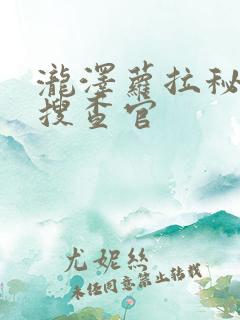 瀧澤蘿拉秘
搜查官
尤妮絲
未经同意禁止转载